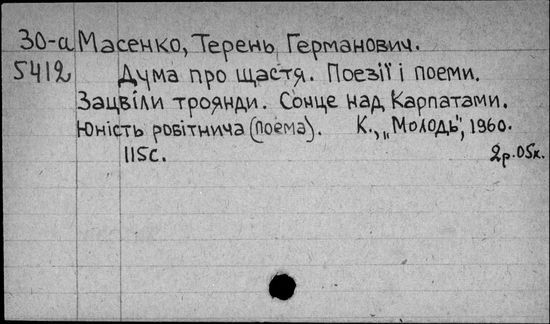 30-а Масенко, Терень Германович.
5412 Дума про щастя. Поезії і поеми.
Зацвіли троянди. Сонце над Карпатами.
Юність робітнича (поема). К., „Молодь", 1960.
115с. 2р.05к.